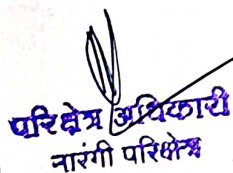 परिक्षेत्र अधिकारी
नारंगी परिक्षेत्र